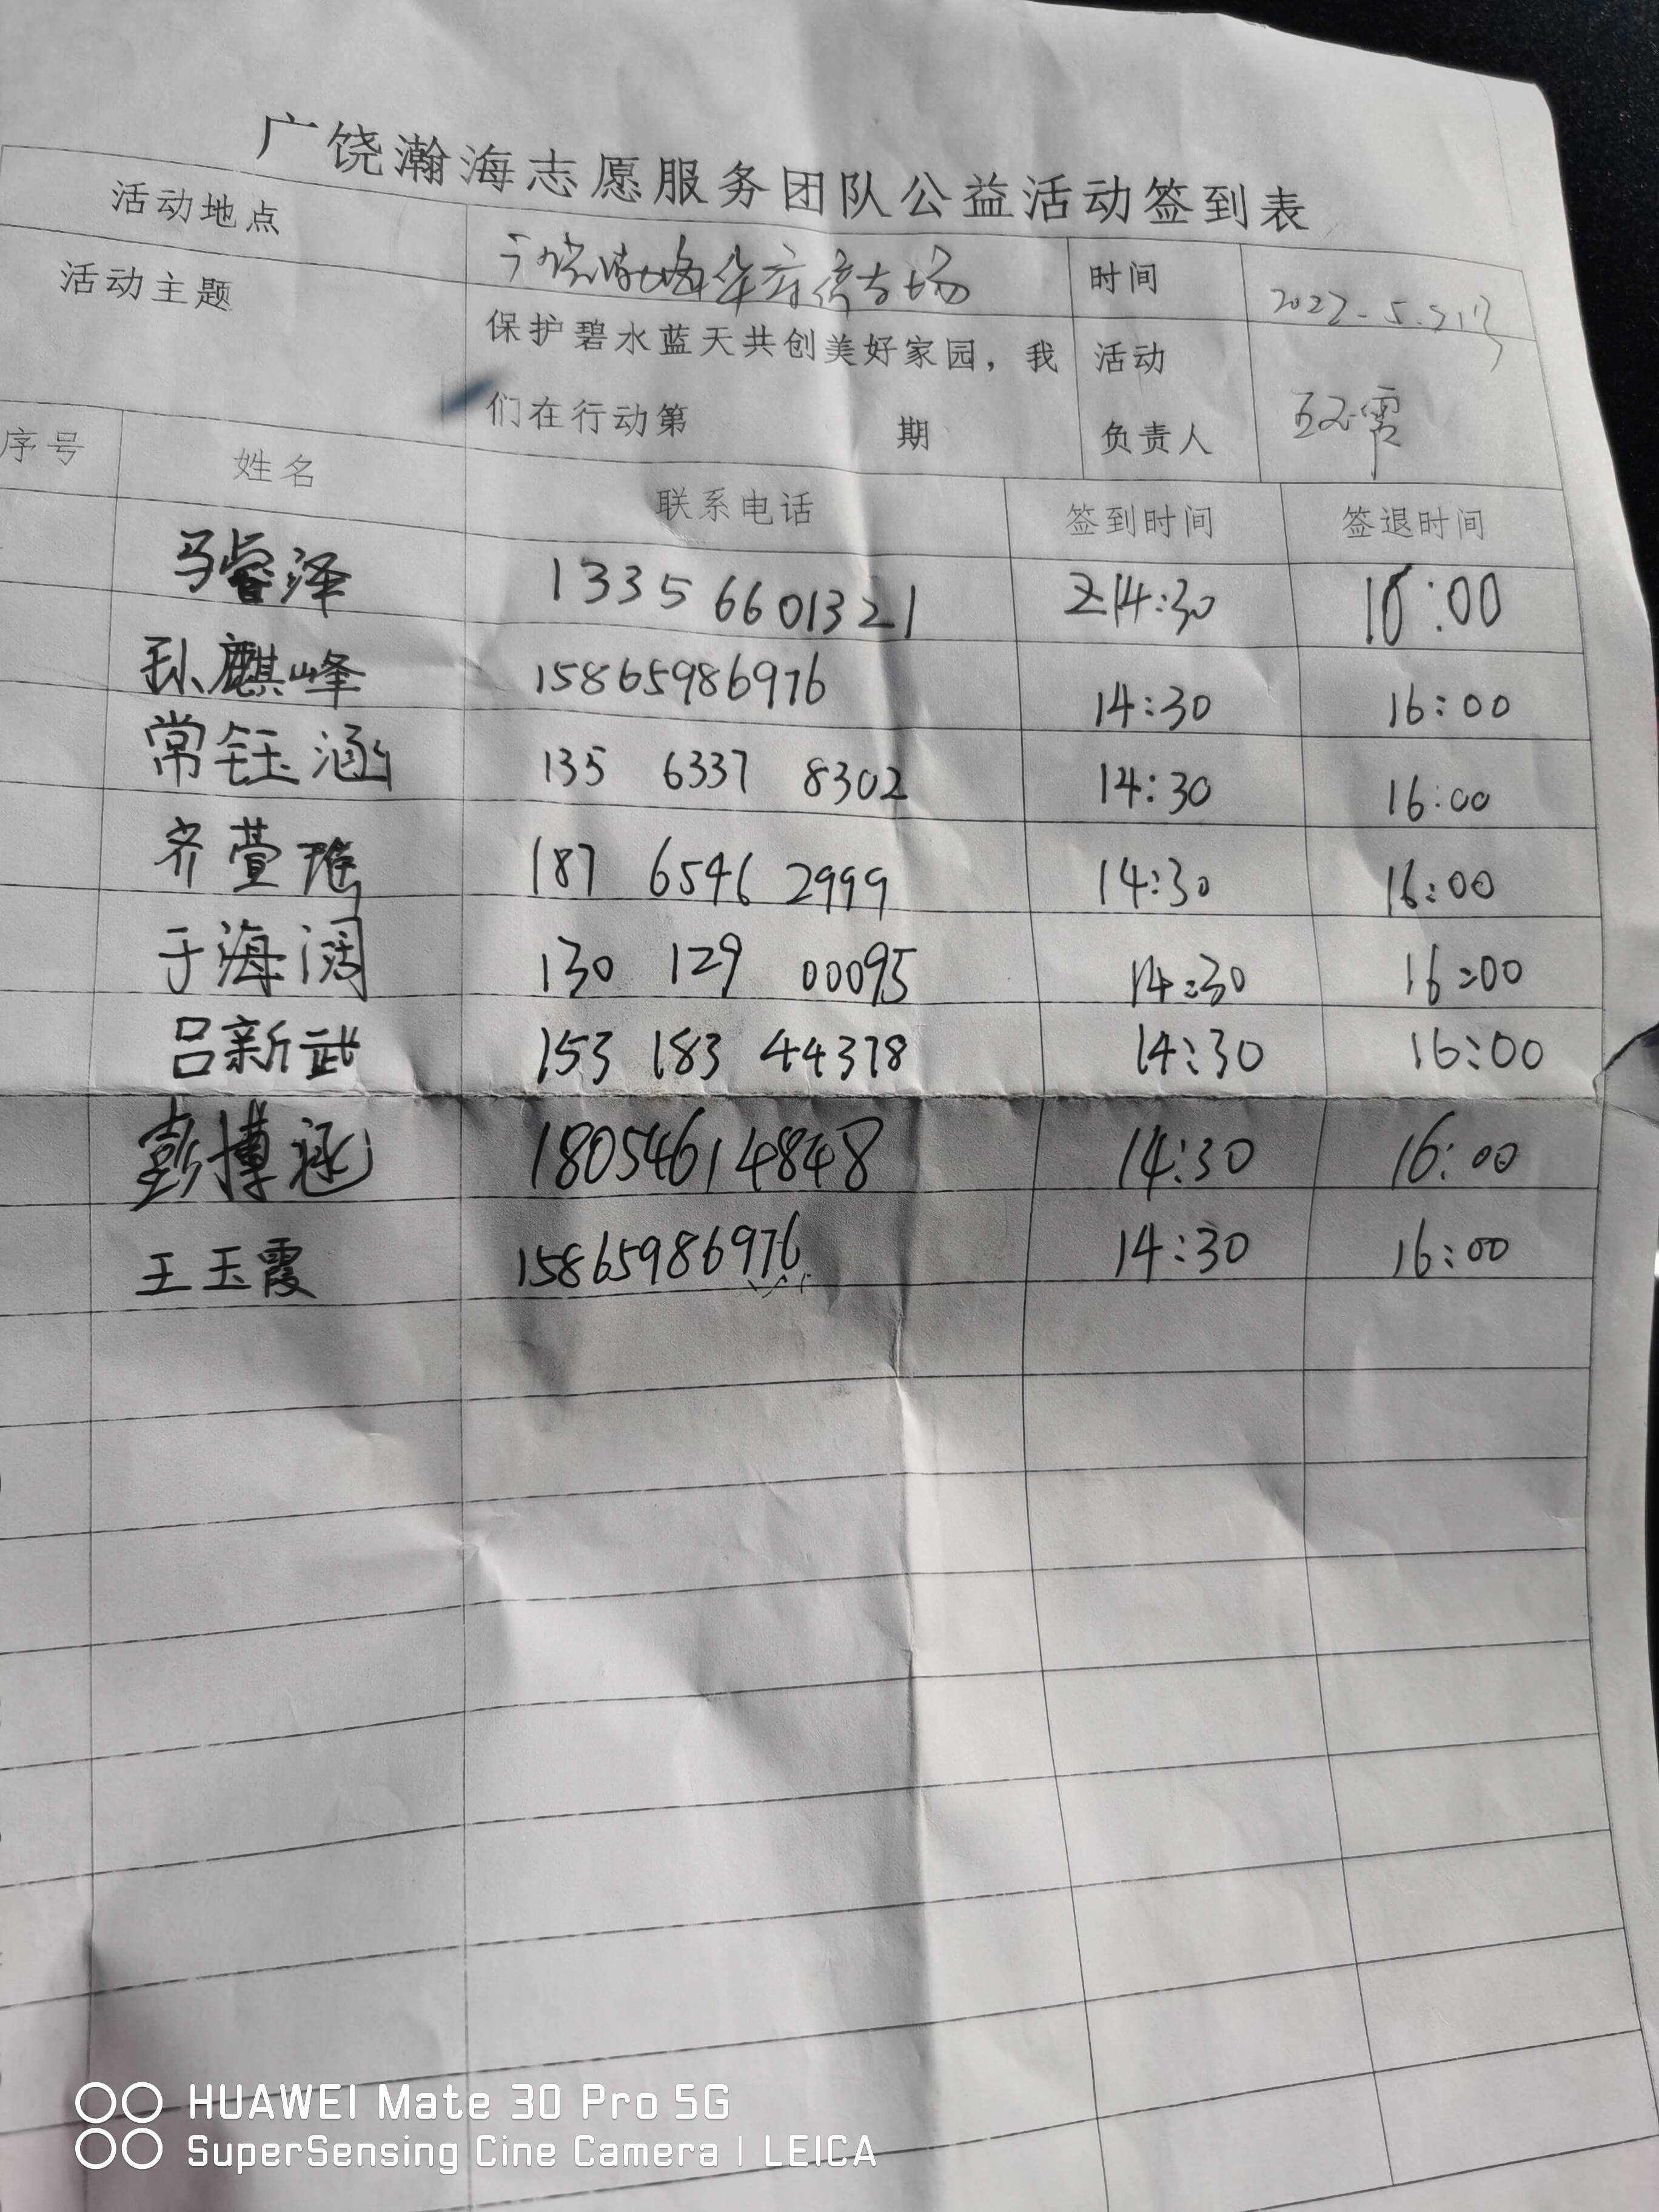 广饶瀚海志愿服务团队公益活动签到表
活动地点 广饶 时间 2022.5.21号
活动主题 保护碧水蓝天共创美好家园，我 活动
们在行动第 期 负责人 王玉霞
序号 姓名 联系电话 签到时间 签退时间
马睿泽 13356601321 14:30 16:00
孙麒峰 15865986976 14:30 16:00
常钰涵 135 6337 8302 14:30 16:00
齐萱瑶 187 6546 2999 14:30 16:00
于海阔 130 129 00095 14:30 16:00
吕新武 153 183 44378 14:30 16:00
彭博涵 18054614848 14:30 16:00
王玉霞 15865986976 14:30 16:00
HUAWEI Mate 30 Pro 5G
SuperSensing Cine Camera | LEICA